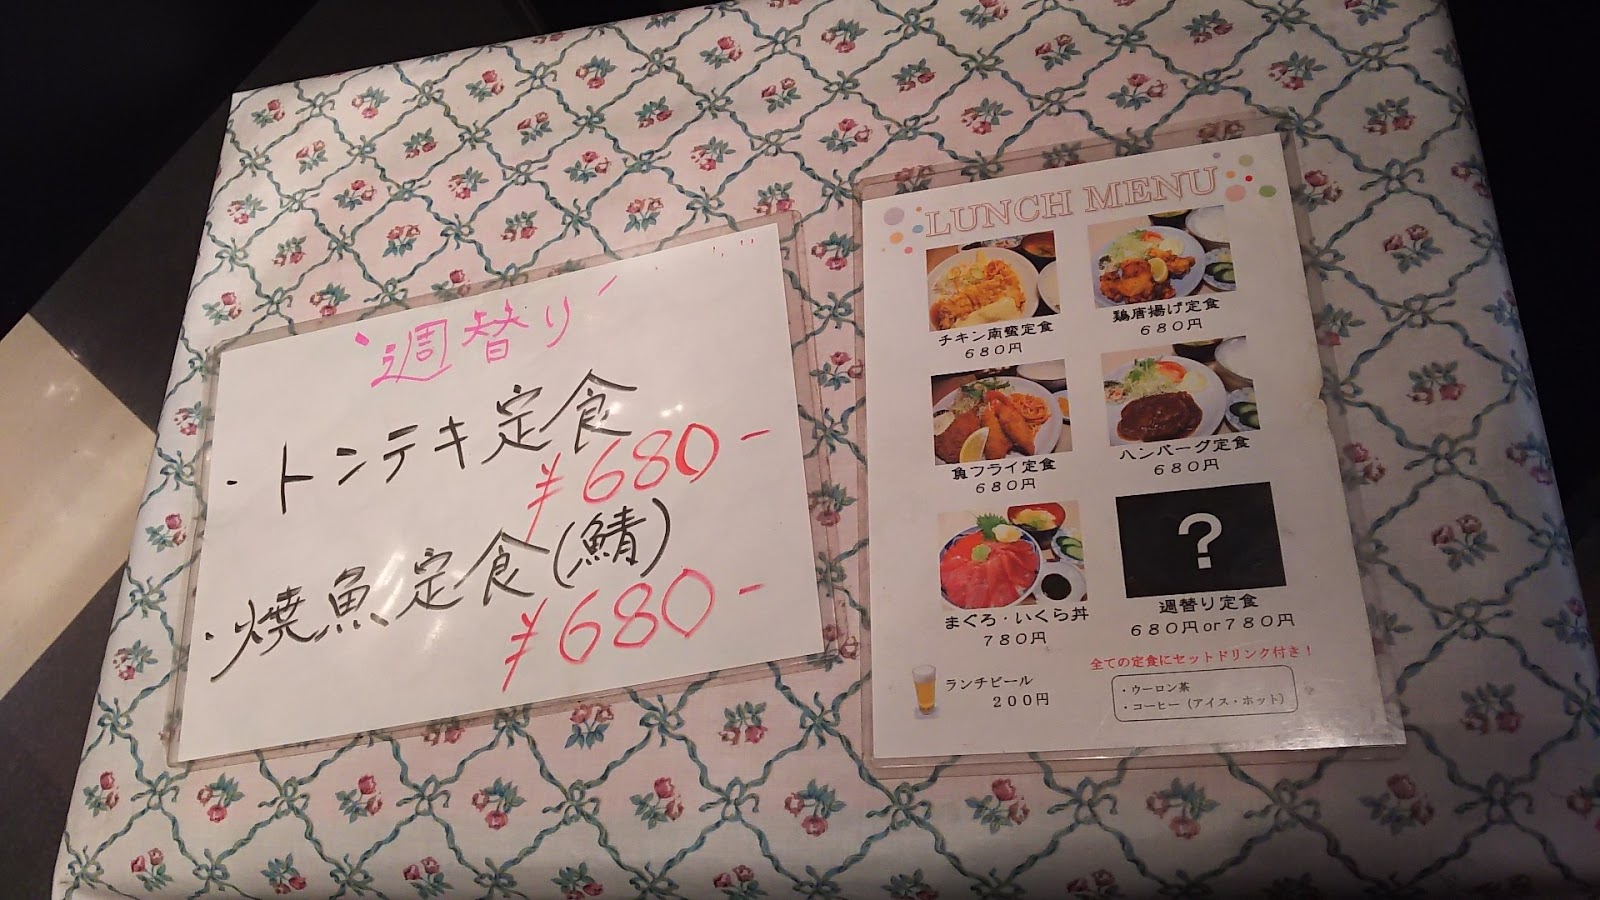 週替り
・トンテキ定食
¥680-
・焼魚定食(鯖)
¥680-
LUNCH MENU
チキン南蛮定食
680円
鶏唐揚げ定食
680円
魚フライ定食
680円
ハンバーグ定食
680円
まぐろ・いくら丼
780円
?
週替り定食
680円or780円
全ての定食にセットドリンク付き！
ランチビール
200円
・ウーロン茶
・コーヒー（アイス・ホット）